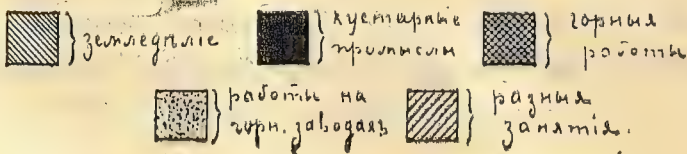 земледѣліе
кустарные
промыслы
горныя
работы
работы на
горн. заводахъ
разныя
занятія.